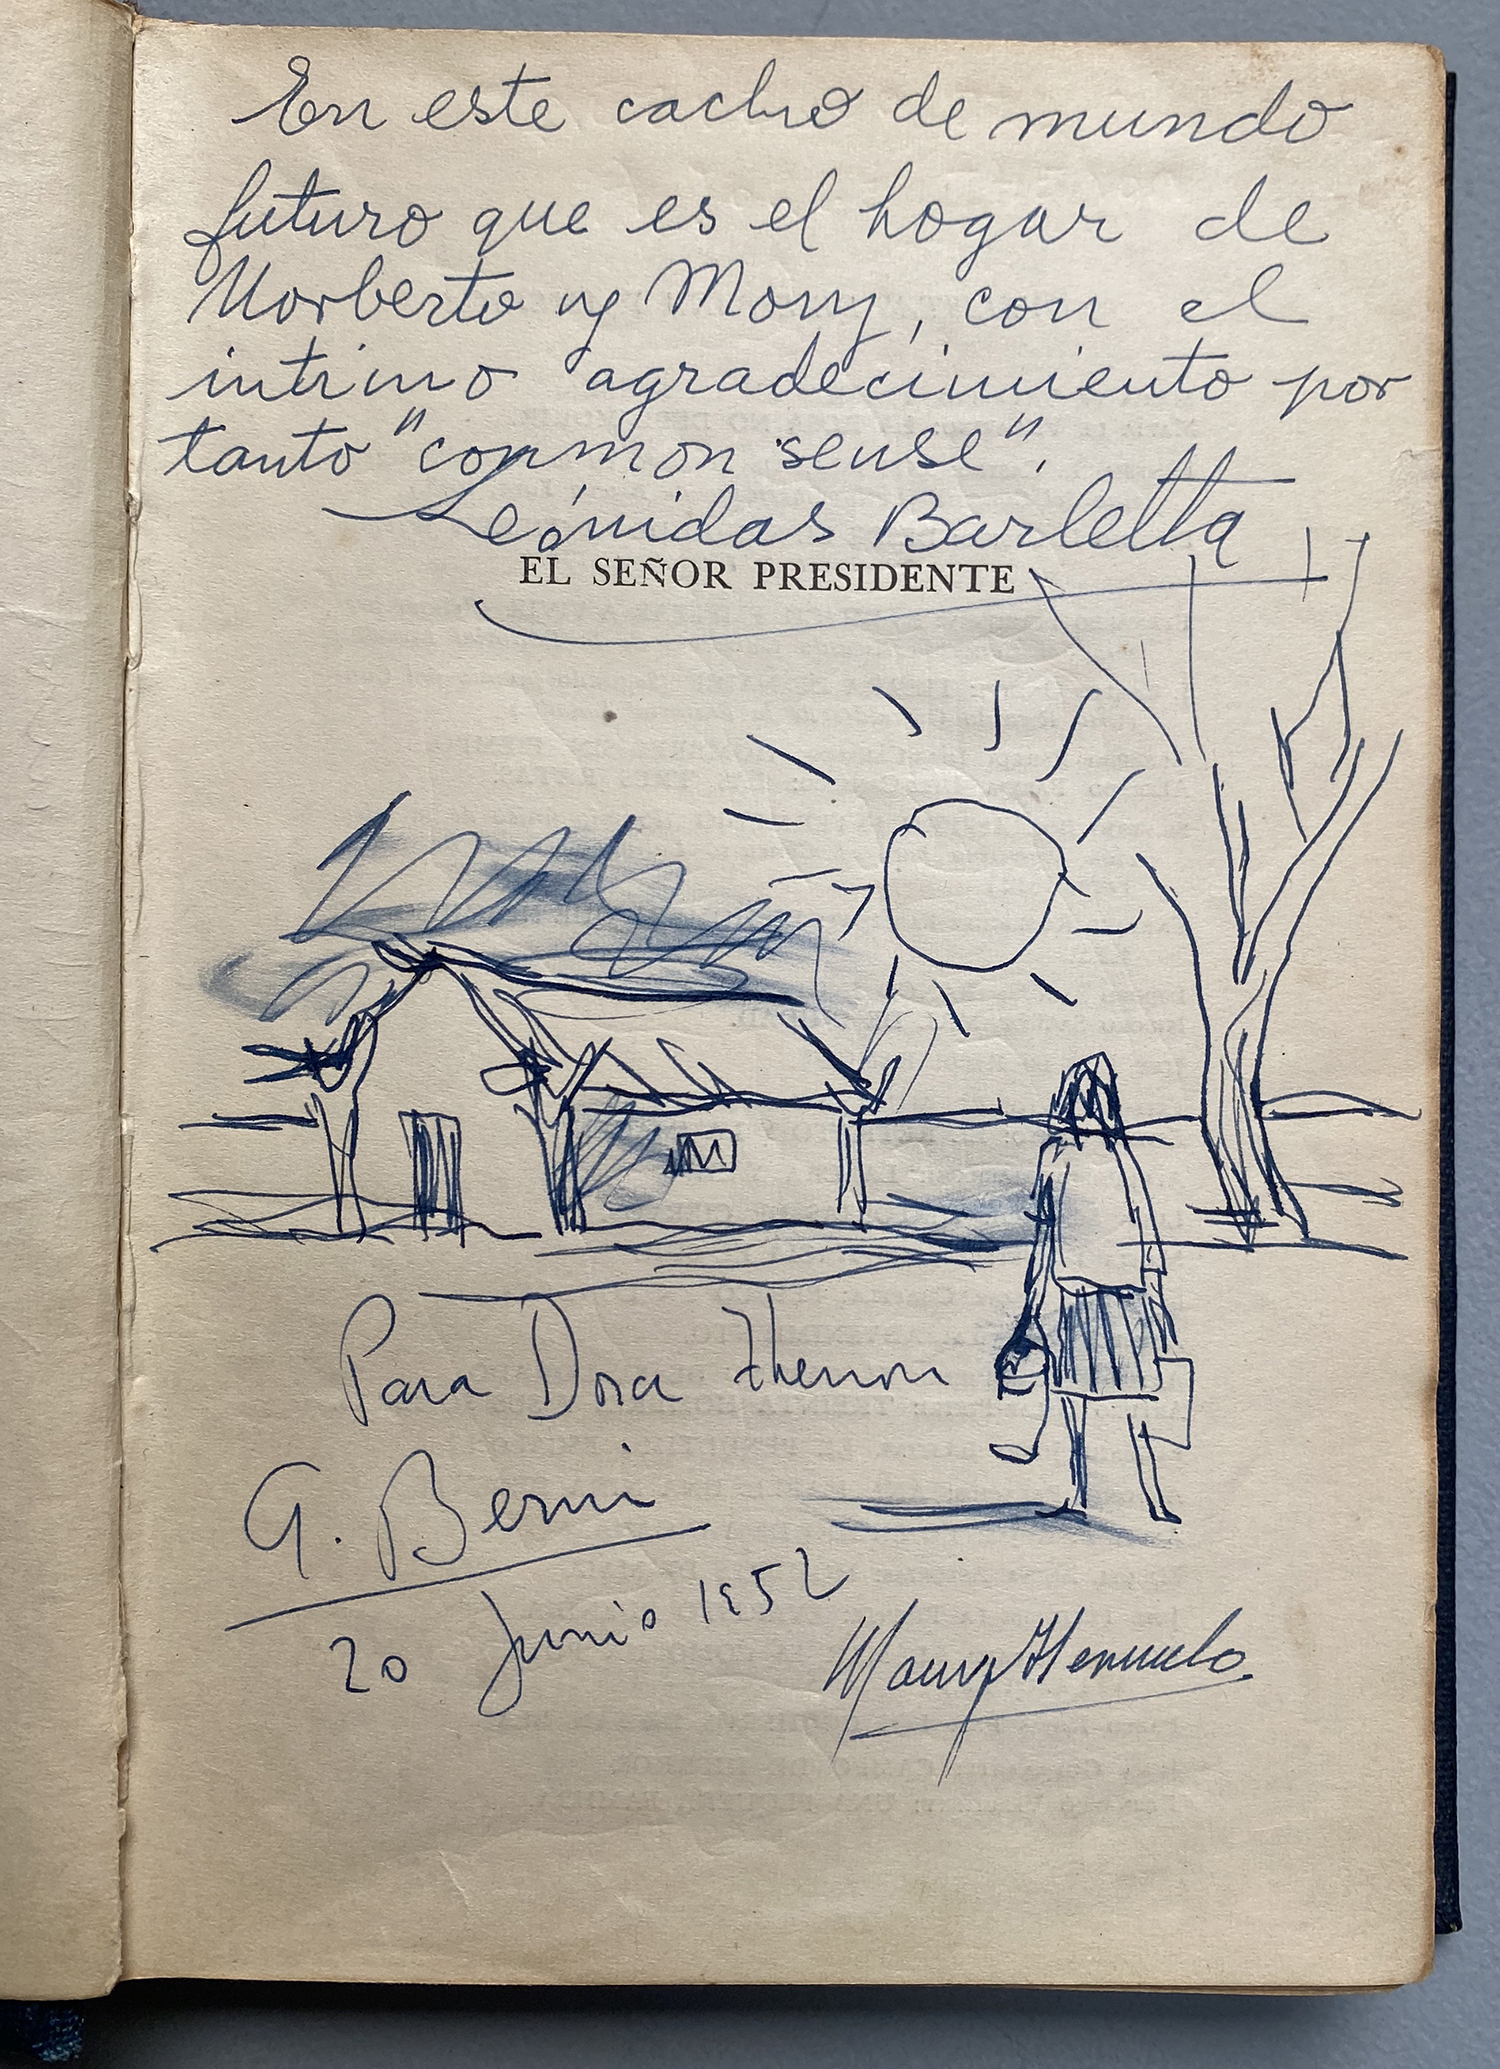 En este cacho de mundo
futuro que es el hogar de
Norberto y Mony, con el
intimo agradecimiento por
tanto "common sense".
Leónidas Barletta
EL SEÑOR PRESIDENTE
Para Dora
A. Berni
20 Junio 1952